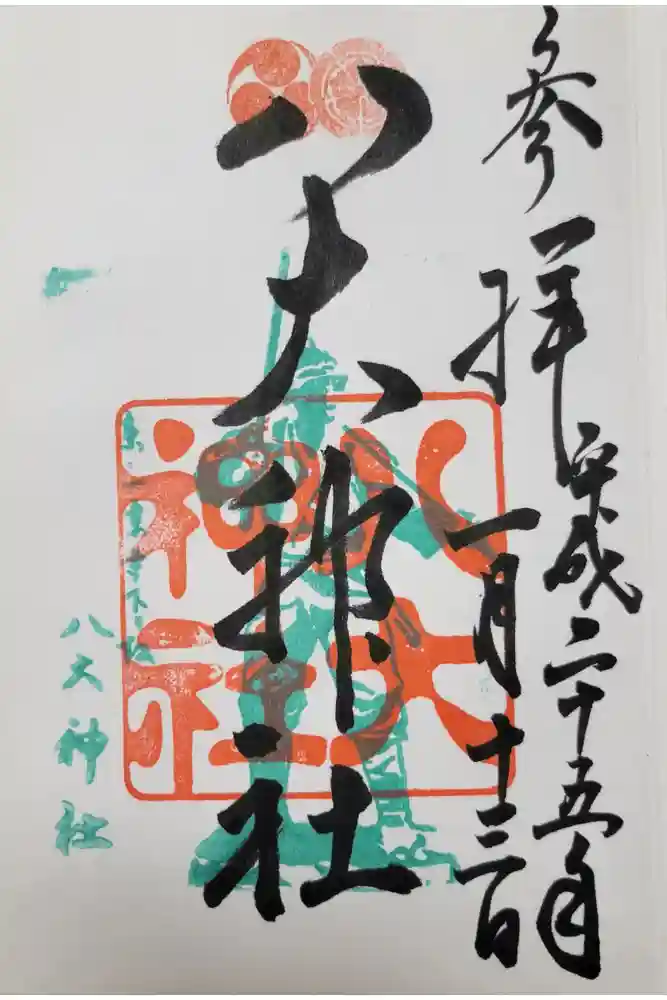 参拝
平成二十五年
一月十三日
八大神社
八大神社
八大神社